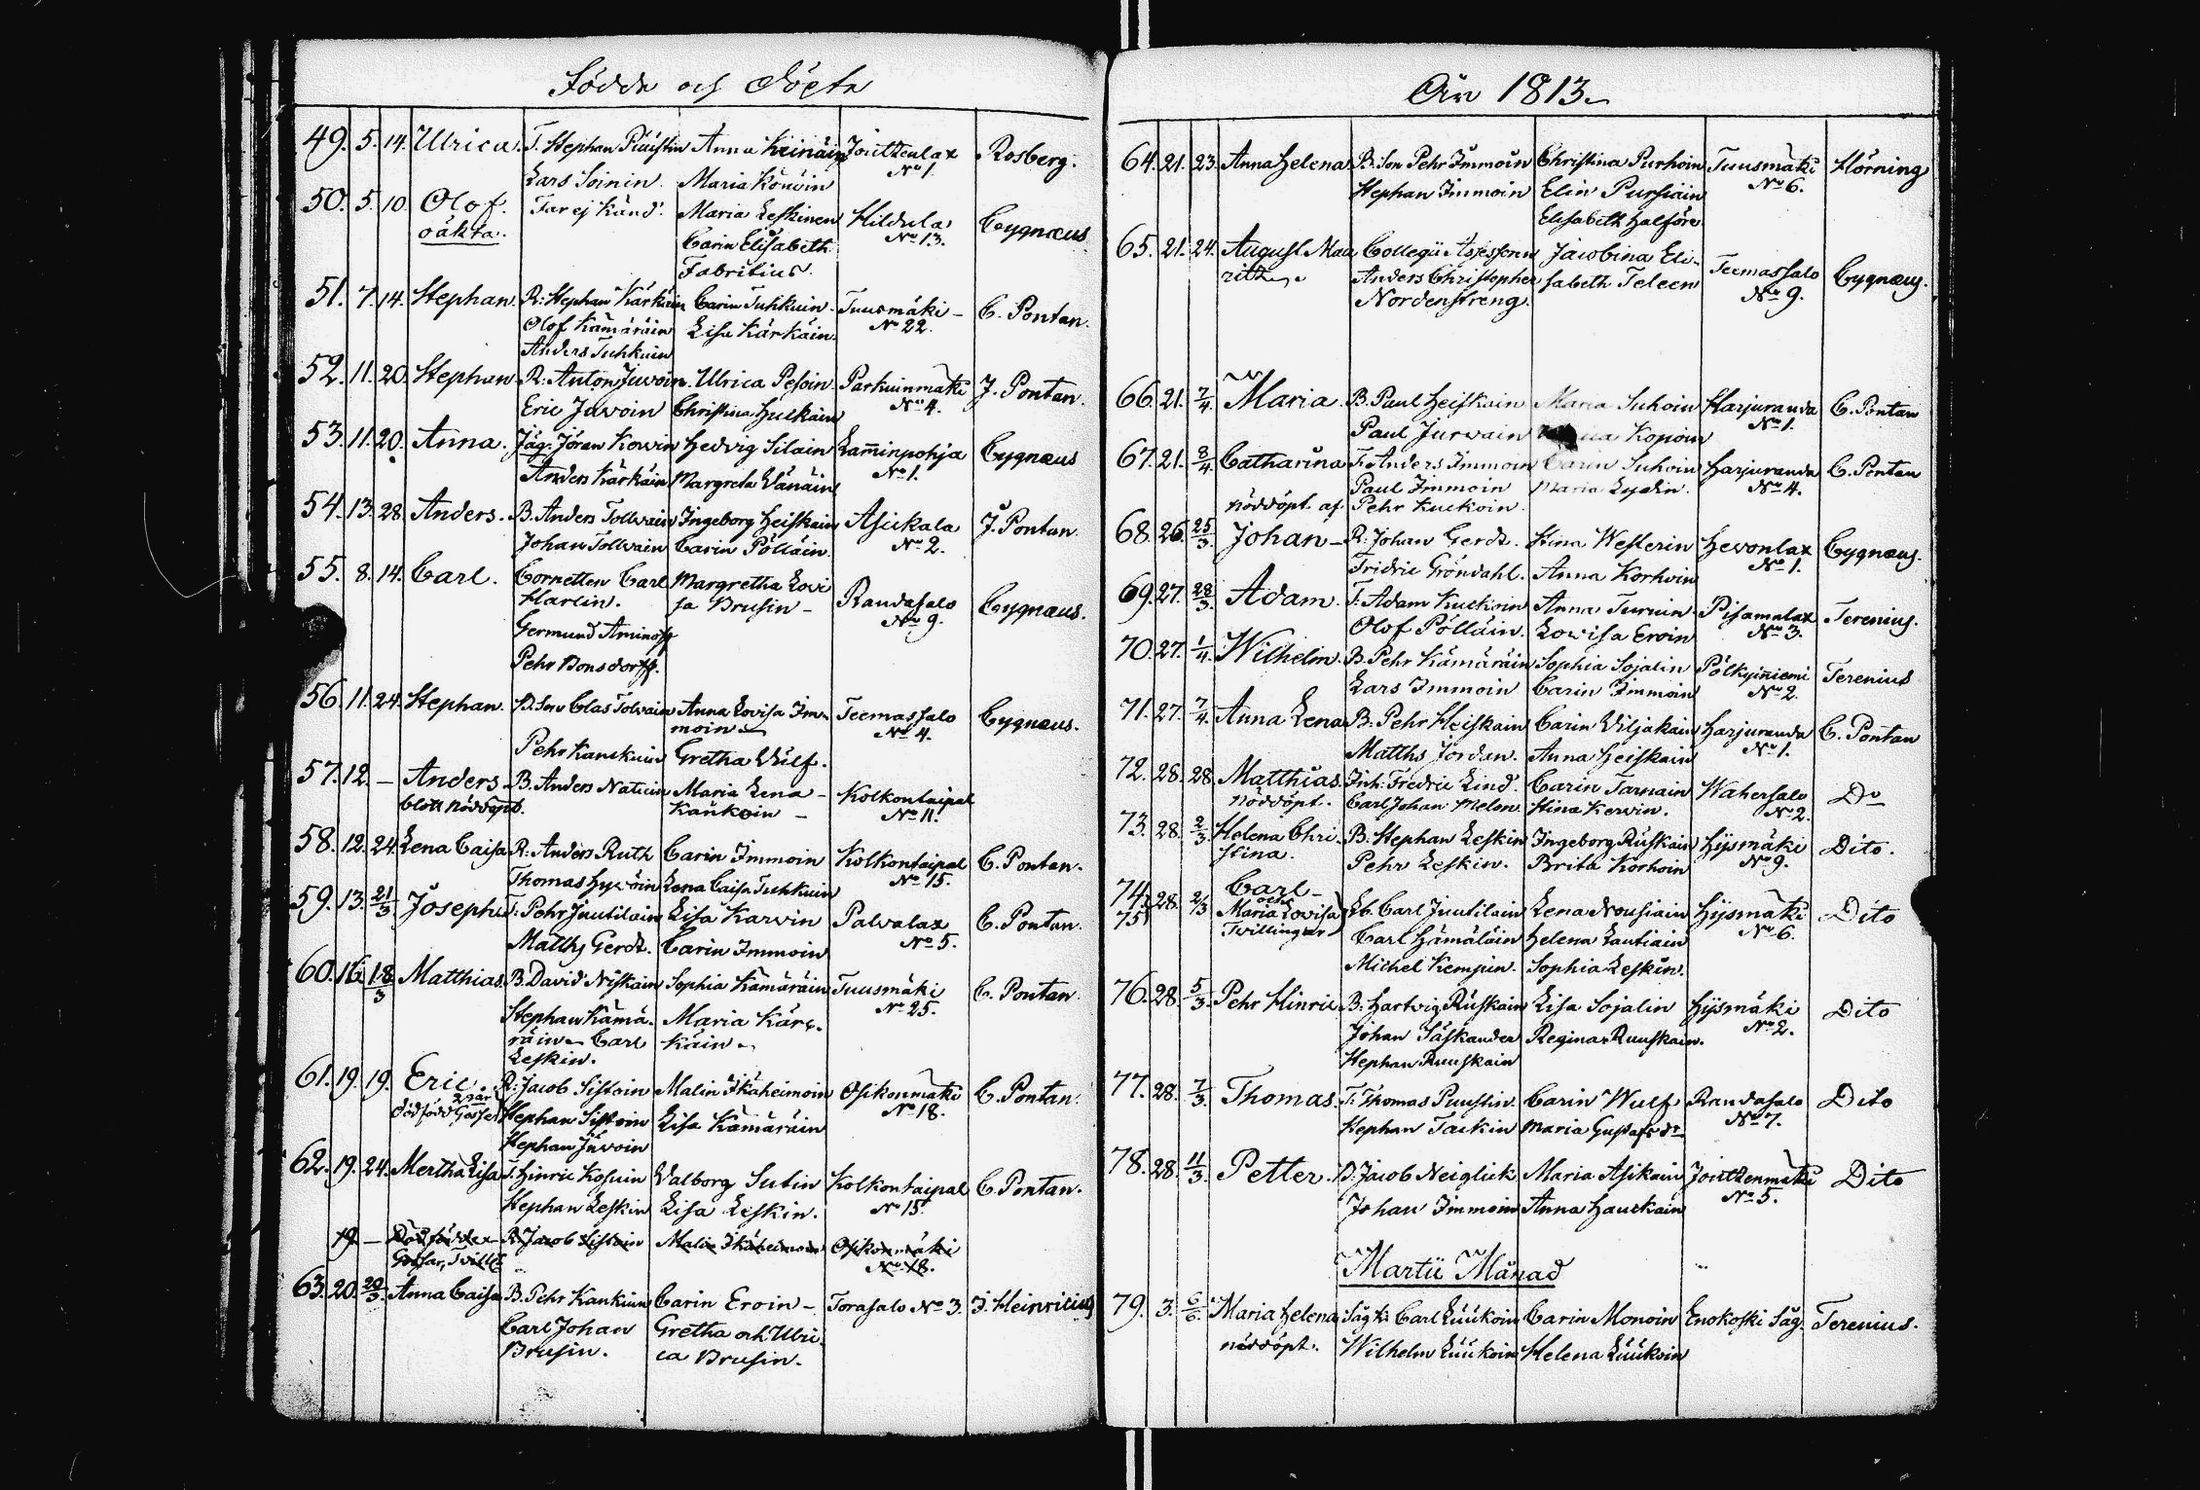 Födde och Döpte
49. 5. 14. Ulrica. T. Stephan Puustin Anna Keinäin Jouttenlax Rosberg.
Lars Soinin. Maria Könöin No 1.
50. 5. 10 Olof. Far ej känd. Maria Leskinen Hildula Cygnæus
oäkta. Carin Elisabeth No 13.
Fabritius.
51. 7. 14. Stephan. R: Stephan Kärkäin Carin Tuhkuin. Tuusmäki C. Pontan.
Olof Kämäräin Lisa Kärkäin. No 22.
Anders Tuhkuin
52. 11. 20. Stephan R: Anton Juvoin. Ulrica Pesoin. Parkuinmäki J. Pontan.
Eric Juvoin Christina Hulkäin No 4.
53. 11. 20. Anna. Jäg: Jöran Kowin Hedvig Silain Laminpohja Cygnæus
Anders Kärkäin Margreta Wänäin No 1.
54. 13. 28. Anders. B. Anders Tollvain Ingeborg Heiskain Asickala J. Pontan.
Johan Tollvain Carin Pölläin. No 2.
55. 8. 14. Carl. Cornetten Carl Margretha Lovi
Harlin. sa Brusin Randasalo Cygnæus.
Germund Aminoff No 9.
Pehr Bonsdorff.
56. 11. 24. Stephan. B. Son Clas Tolvain Anna Lovisa Im- Teemassalo Cygnæus.
moin No 4.
Pehr Kanckuin Gretha Wulf.
57. 12. — Anders B. Anders Naticin Maria Lena Kolkontaipal
blott nöddöpt. Känkoin No 11.
58. 12. 24. Lena Caisa R: Anders Ruth Carin Immoin Kolkontaipal C. Pontan.
Thomas Hyvöin Lena Caisa Tuhkuin No 15.
59. 13. 21/3 Joseph T: Pehr Juutilain Lisa Karvin Palvalax C. Pontan.
Matths Gerdt. Carin Immoin No 5.
60. 16. 18/3 Matthias. B. David Niskain Sophia Kämäräin Tuusmäki C. Pontan.
Stephan Kämä- Maria Kärc- No 25.
räin Carl käin
Leskin.
61. 19. 19. Eric. R: Jacob Sistoin Malin Ikäheimoin Osikonmäki C. Pontan.
dödfödd Gosse Stephan Sistoin Lisa Kämäräin No 18.
Stephan Juvoin
62. 19. 24. Mertha Lisa T. Hinric Kosuin Walborg Sutin Kolkontaipal C. Pontan.
Stephan Leskin Lisa Leskin. No 15.
19 — Dödfödde R Jacob Sistoin Malin Ikäheimoin Osikonmäki
Gossar, No 18.
63. 20. 20/3 Anna Caisa B. Pehr Kankuin Carin Eroin Torasalo No 3. J. Heinricius
Carl Johan Gretha och Ulri-
Brusin. ca Brusin.
År 1813
64. 21. 23. Anna Helena B. Son Pehr Immoin Christina Purhoin Tuusmäki Hörning
Stephan Immoin Elin Pursiäin No 6.
Elisabeth Halförs
65. 21. 24. August Mau Collegii Assessorn Jacobina Eli- Teemassalo Cygnæus.
ritz. Anders Christopher sabeth Teleen No 9.
Nordenstreng.
66. 21. 7/4. Maria. B. Paul Heiskain Maria Suhoin Harjuranda C. Pontan
Paul Jurvain Kopoin No 1.
67. 21. 8/4 Catharina T. Anders Immoin Carin Suhoin Harjuranda C. Pontan
Paul Immoin Maria Lydin. No 4.
nöddöpt. af Pehr Kuckoin.
68. 26. 25/3. Johan R. Johan Gerdt. Stina Westerin Hevonlax Cygnæus.
Fridric Gröndahl. Anna Korhoin No 1.
69. 27. 28/3. Adam. T. Adam Kuckoin Anna Turuin Pisamalax Terenius.
Olof Pölläin. Lovisa Eroin No 3.
70. 27. 1/4. Wilhelm. B. Pehr Kämäräin Sophia Sojalin Pölkyiniemi Terenius
Lars Immoin Carin Immoin No 2.
71. 27. 7/4. Anna Lena B: Pehr Heiskain Carin Wiljakain Harjuranda C. Pontan
Matths Jordan. Anna Heiskain No 1.
72. 28. 28. Matthias. Inh: Fredric Lind. Carin Tarnain Wahersalo Do
nöddöpt. Carl Johan Melen. Stina Kervin. No 2.
73. 28. 2/3 Helena Chri- B. Stephan Leskin Ingeborg Ruskain Hysmäki Dito.
stina. Pehr Leskin. Brita Korhoin No 9.
74. Carl
och
75. 28. 2/3 Maria Lovisa Lb. Carl Juutilain Lena Nousiain Hysmäki Dito
Tvillingar Carl Hämäläin Helena Lautiain No 6.
Michel Kempin. Sophia Leskin.
76. 28. 5/3 Pehr Hinric B: Hartvig Ruskain Lisa Sojalin Hysmäki Dito
Johan Säskander Regina Ruuskain. No 2.
Stephan Ruuskain
77. 28. 7/3. Thomas. T: Thomas Puustin. Carin Wulf Randasalo Dito
Stephan Tackin Maria Gustafsdr No 7.
78. 28. 11/3. Petter. D. Jacob Neiglick Maria Asikain Jouttenmäki Dito
Johan Immoin Anna Hauckain No 5.
Martii Månad
79. 3. 6/6. Maria Helena Såg k: Carl Luukoin Carin Monoin Enokoski Såg. Terenius.
nöddöpt. Wilhelm Luukoin Helena Luukoin